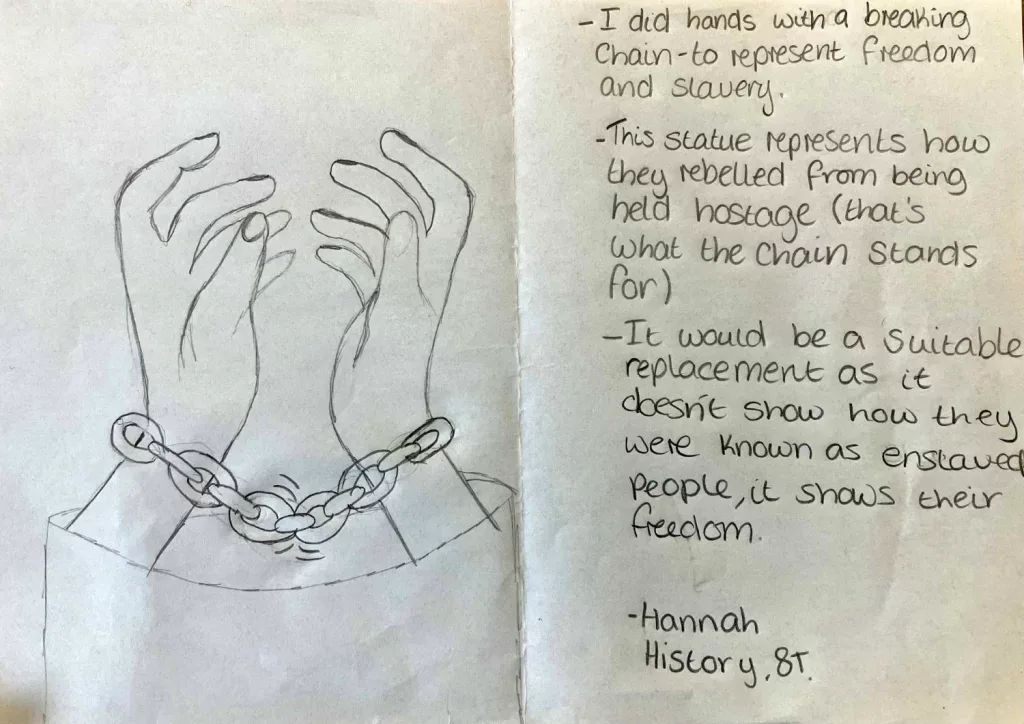 - I did hands with a breaking
Chain - to represent freedom
and slavery.
- This statue represents how
they rebelled from being
held hostage (that's
what the chain stands
for)
- It would be a suitable
replacement as it
doesn't show how they
were known as enslaved
people, it shows their
freedom.
- Hannah
History, 8T.